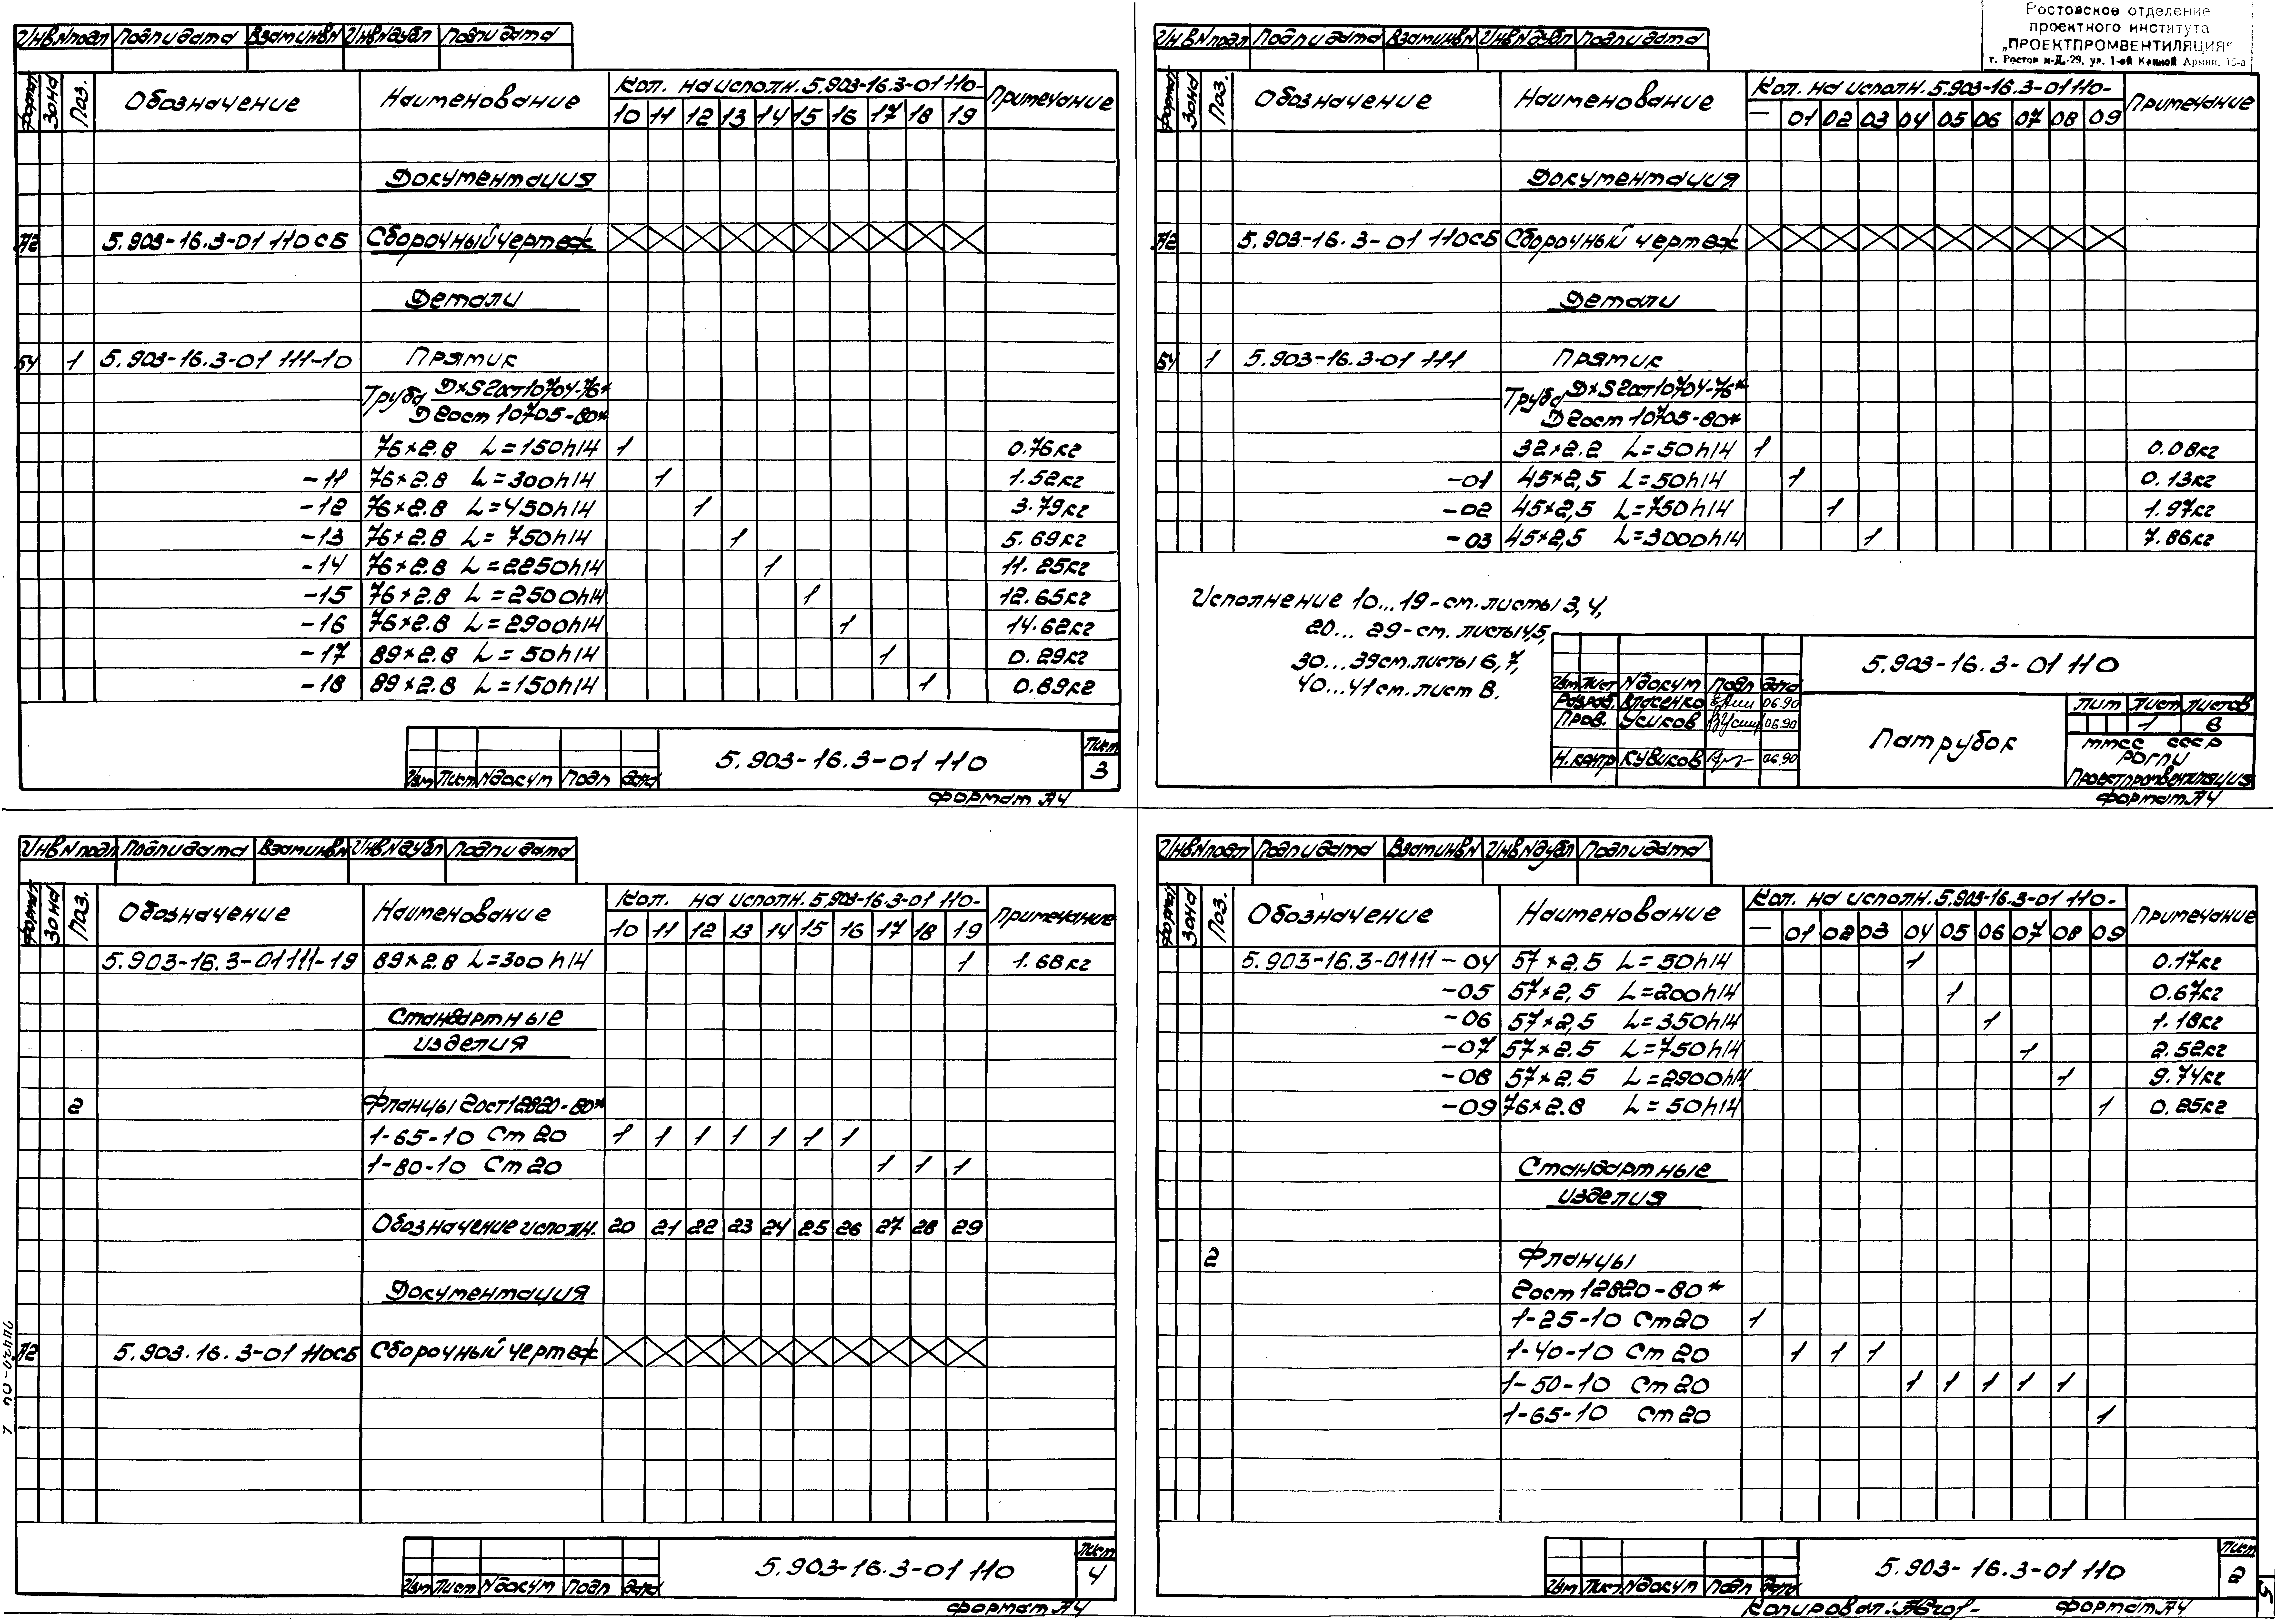 Инв.N подл Подп и дата Взам инв N Инв N дубл Подп и дата
Формат Зона Поз. Обозначение Наименование Кол. на исполн. 5.903-16.3-01 110- Примечание
10 11 12 13 14 15 16 17 18 19
Документация
А2 5.903-16.3-01 110СБ Сборочный чертеж
Детали
БЧ 1 5.903-16.3-01 111-10 Прямик
Труба DxS Гост 10704-76*
D Гост 10705-80*
76×2.8 L=150h14 1 0.76кг
-11 76×2.8 L=300h14 1 1.52кг
-12 76×2.8 L=450h14 1 3.79кг
-13 76×2.8 L=750h14 1 5.69кг
-14 76×2.8 L=2250h14 1 11.25кг
-15 76×2.8 L=2500h14 1 12.65кг
-16 76×2.8 L=2900h14 1 14.62кг
-17 89×2.8 L=50h14 1 0.29кг
-18 89×2.8 L=150h14 1 0.89кг
Изм Лист N докум Подп Дата
5.903-16.3-01 110
Лист
3
Формат А4
Ростовское отделение
проектного института
„ПРОЕКТПРОМВЕНТИЛЯЦИЯ“
г. Ростов н-Д.-29, ул. 1-ой Конной Армии, 15-а
Инв N подл Подп и дата Взам инв N Инв N дубл Подп и дата
Формат Зона Поз. Обозначение Наименование Кол. на исполн. 5.903-16.3-01 110- Примечание
— 01 02 03 04 05 06 07 08 09
Документация
А2 5.903-16.3-01 110СБ Сборочный чертеж
Детали
БЧ 1 5.903-16.3-01 111 Прямик
Труба DxS Гост 10704-76*
D Гост 10705-80*
32×2.2 L=50h14 1 0.08кг
-01 45×2,5 L=50h14 1 0.13кг
-02 45×2,5 L=750h14 1 1.97кг
-03 45×2,5 L=3000h14 1 7.86кг
Исполнение 10...19-см. листы 3,4,
20... 29-см. листы 4,5,
30...39 см. листы 6,7,
40...41 см. лист 8.
Изм Лист N докум Подп Дата
Разраб. Власенко 06.90
Пров. Усиков 06.90
Н.контр Кувиков 06.90
5.903-16.3-01 110
Патрубок
Лит Лист Листов
1 8
ММСС СССР
РОГПИ
Проектпромвентиляция
Формат А4
Инв N подл Подп и дата Взам инв N Инв N дубл Подп и дата
Формат Зона Поз. Обозначение Наименование Кол. на исполн. 5.903-16.3-01 110- Примечание
10 11 12 13 14 15 16 17 18 19
5.903-16.3-01 111-19 89×2.8 L=300h14 1 1.68кг
Стандартные
изделия
2 Фланцы Гост 12820-80*
1-65-10 Ст 20 1 1 1 1 1 1 1
1-80-10 Ст 20 1 1 1
Обозначение исполн. 20 21 22 23 24 25 26 27 28 29
Документация
А2 5.903.16.3-01 110СБ Сборочный чертеж
Изм Лист N докум Подп Дата
5.903-16.3-01 110
Лист
4
Формат А4
Инв N подл Подп и дата Взам инв N Инв N дубл Подп и дата
Формат Зона Поз. Обозначение Наименование Кол. на исполн. 5.903-16.3-01 110- Примечание
— 01 02 03 04 05 06 07 08 09
5.903-16.3-01 111-04 57×2.5 L=50h14 1 0.17кг
-05 57×2,5 L=200h14 1 0.67кг
-06 57×2,5 L=350h14 1 1.18кг
-07 57×2.5 L=750h14 1 2.52кг
-08 57×2.5 L=2900h14 1 9.74кг
-09 76×2.8 L=50h14 1 0.25кг
Стандартные
изделия
2 Фланцы
Гост 12820-80*
1-25-10 Ст 20 1
1-40-10 Ст 20 1 1 1
1-50-10 Ст 20 1 1 1 1 1
1-65-10 Ст 20 1
Изм Лист N докум Подп Дата
5.903-16.3-01 110
Лист
2
Копировал:
Формат А4
5